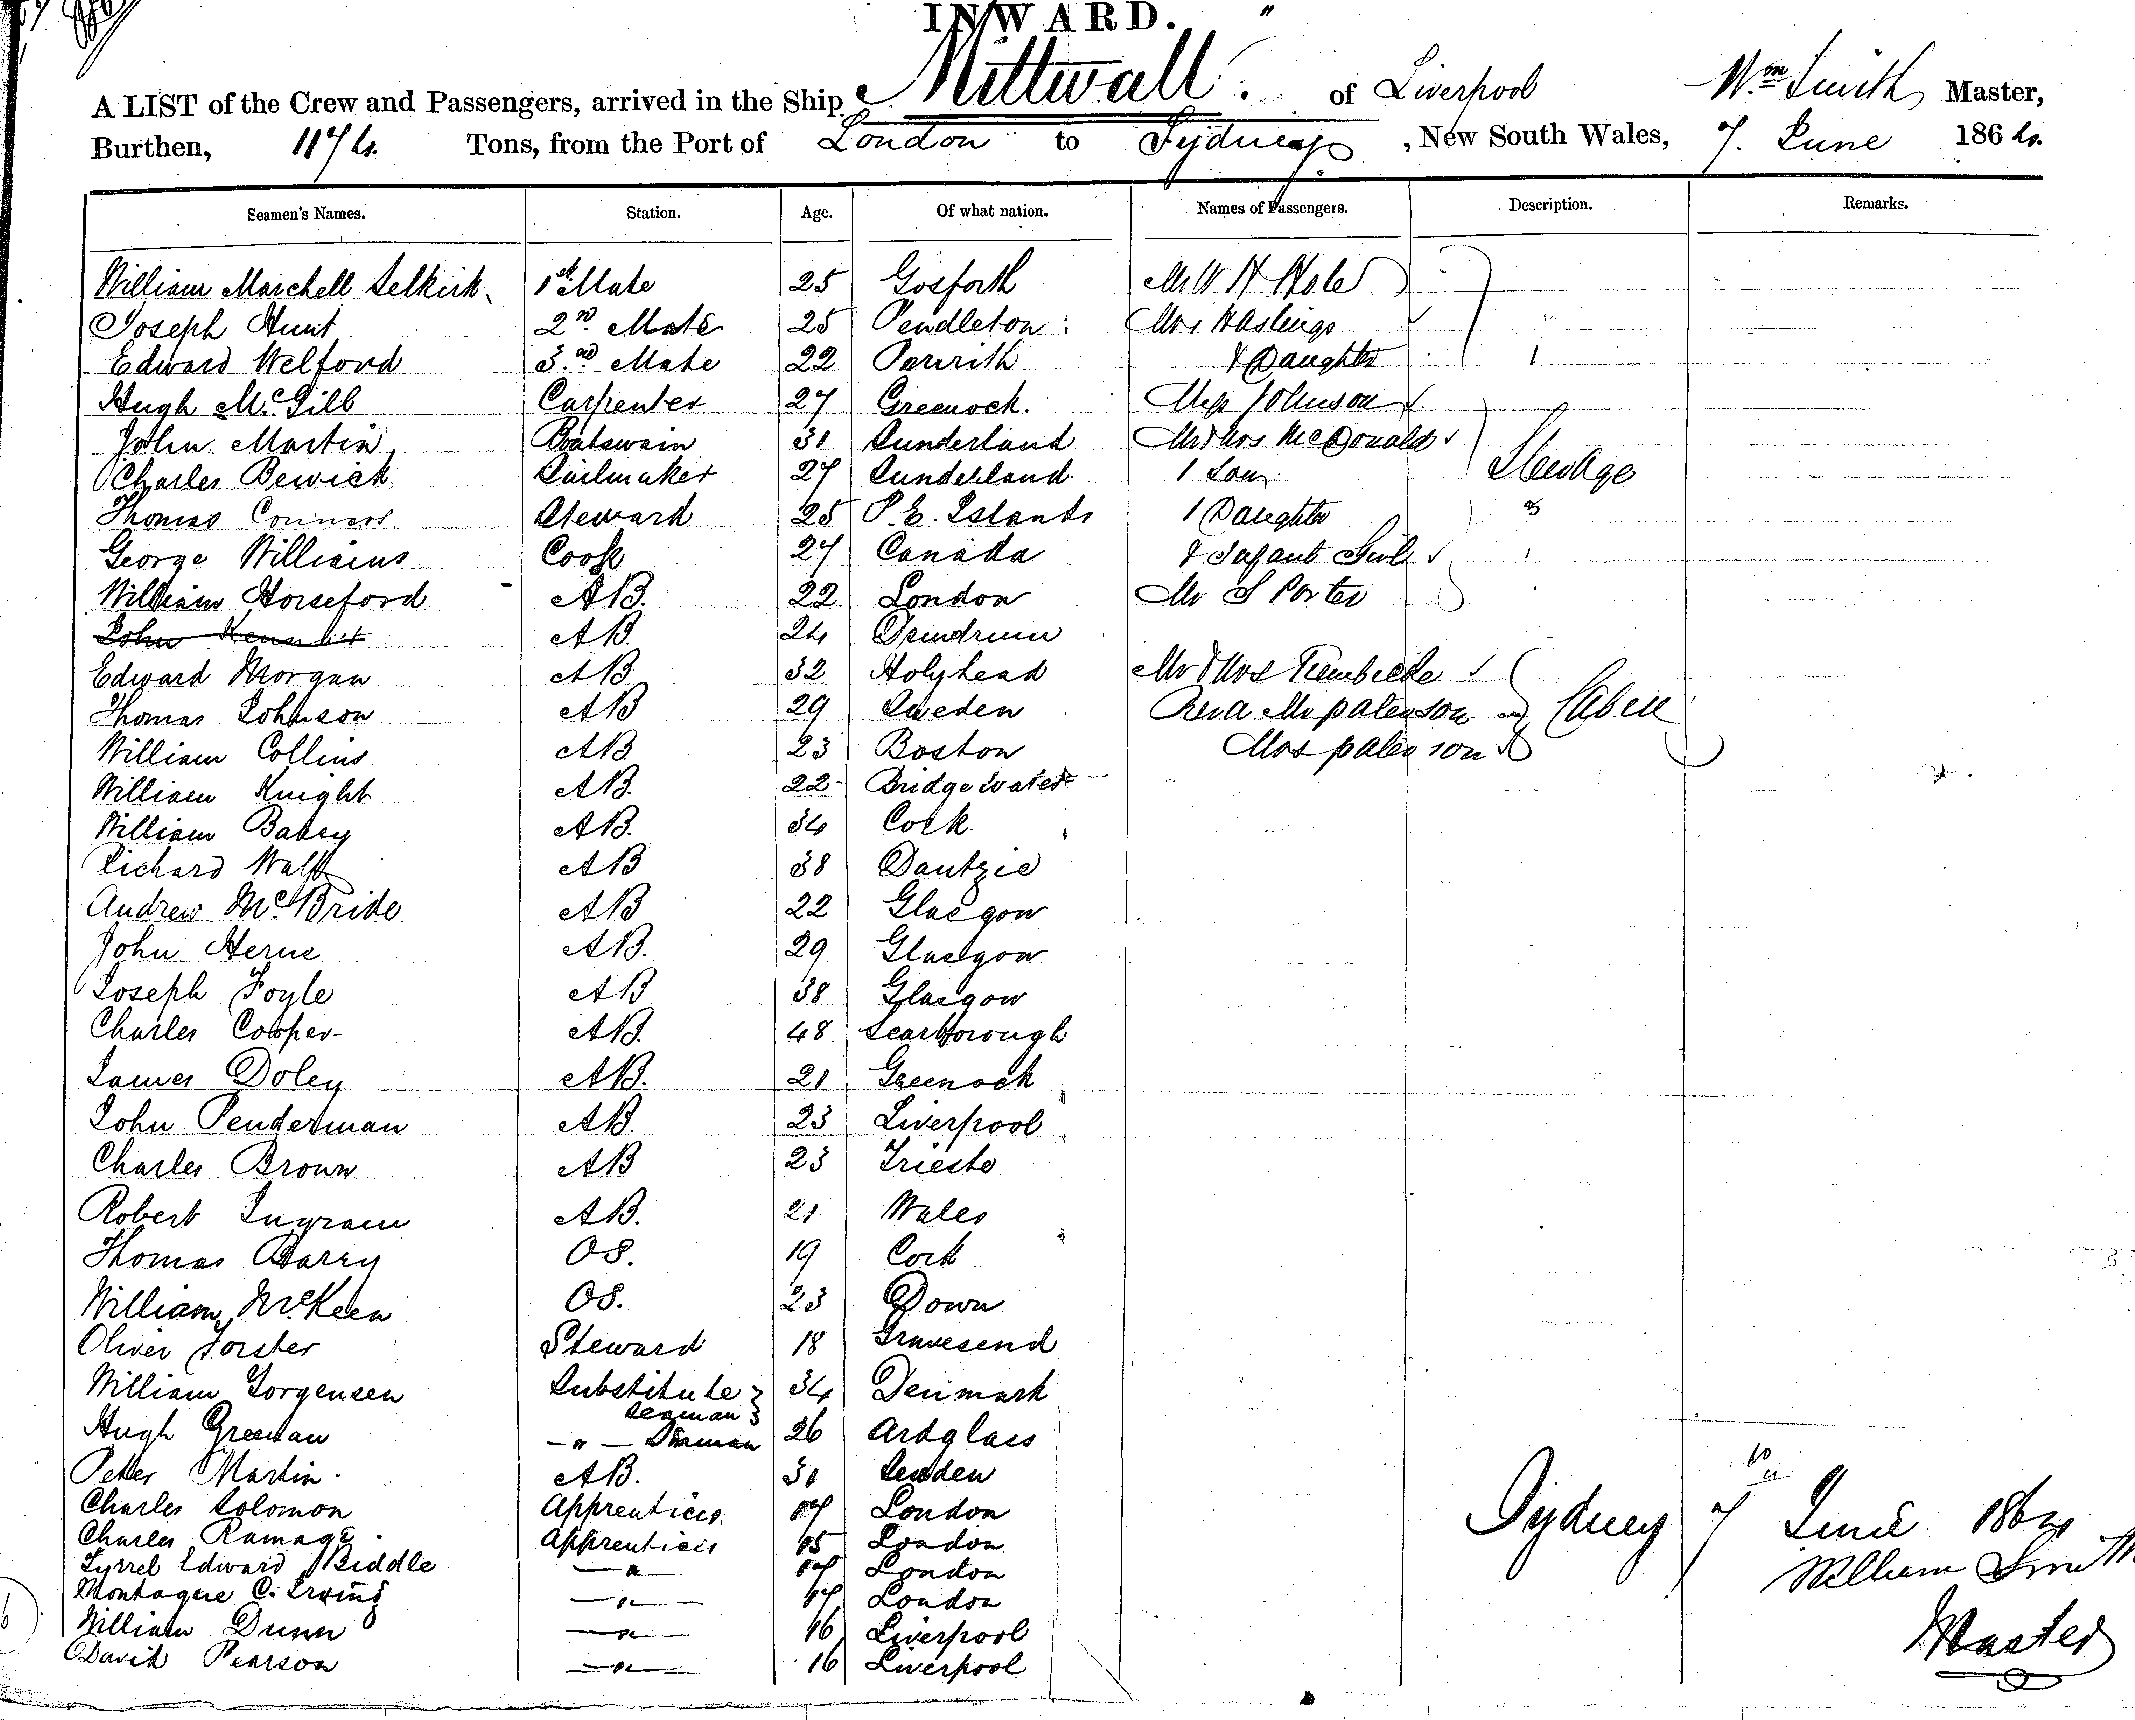 INWARD.
A LIST of the Crew and Passengers, arrived in the Ship Millwall. of Liverpool Wm Smith Master,
Burthen, Tons, from the Port of London to Sydney, New South Wales, 7. June 1864.
Seamen's Names. Station. Age. Of what nation. Names of Passengers. Description. Remarks.
William Marchell Selkirk 1st Mate 25 Gosforth Mr W H
Joseph Hunt 2nd Mate 25 Pendleton Mrs Hastings
Edward Welford 3rd Mate 22 Penrith & Daughter 1
Hugh McGill Carpenter 27 Greenock. Miss Johnson
John Martin Boatswain 31 Sunderland Mr & Mrs McDonald
Charles Bewick Sailmaker 27 Sunderland 1 Son Steerage
Thomas Connors Steward 25 P. E. Islands 1 Daughter
George Williams Cook 27 Canada & Infant Girl
William Horseford AB. 22 London Mr S Porter
John AB 24
Edward Morgan AB 32 Holyhead Mr & Mrs
Thomas Johnson AB 29 Sweden Revd Mr paterson Cabin
William Collins AB 23 Boston Mrs paterson
William Knight AB. 22 Bridgewater
William AB. 34 Cork
Richard AB 38 Dantzic
Andrew McBride AB 22 Glasgow
John Herne AB. 29 Glasgow
Joseph Foyle AB 38 Glasgow
Charles Cooper AB. 48 Scarborough
James Doley AB. 21 Greenock
John Penderman AB. 23 Liverpool
Charles Brown AB 23 Trieste
Robert Ingram AB. 21 Wales
Thomas Barry OS. 19 Cork
William McKeen OS. 23 Down
Oliver Forster Steward 18 Gravesend
William Jorgensen Substitute Seaman 34 Denmark
Hugh Greenan —"— Seaman 26 Ardglass
Peter Martin. AB. 30
Charles Solomon Apprentices 17 London
Charles Ramage Apprentices 15 London
Tyrrel Edward Biddle —"— 17 London
Montague C. Irving —"— 17 London
William Dunn —"— 16 Liverpool
David Pearson —"— 16 Liverpool
Sydney 7 June 1864
William Smith
Master